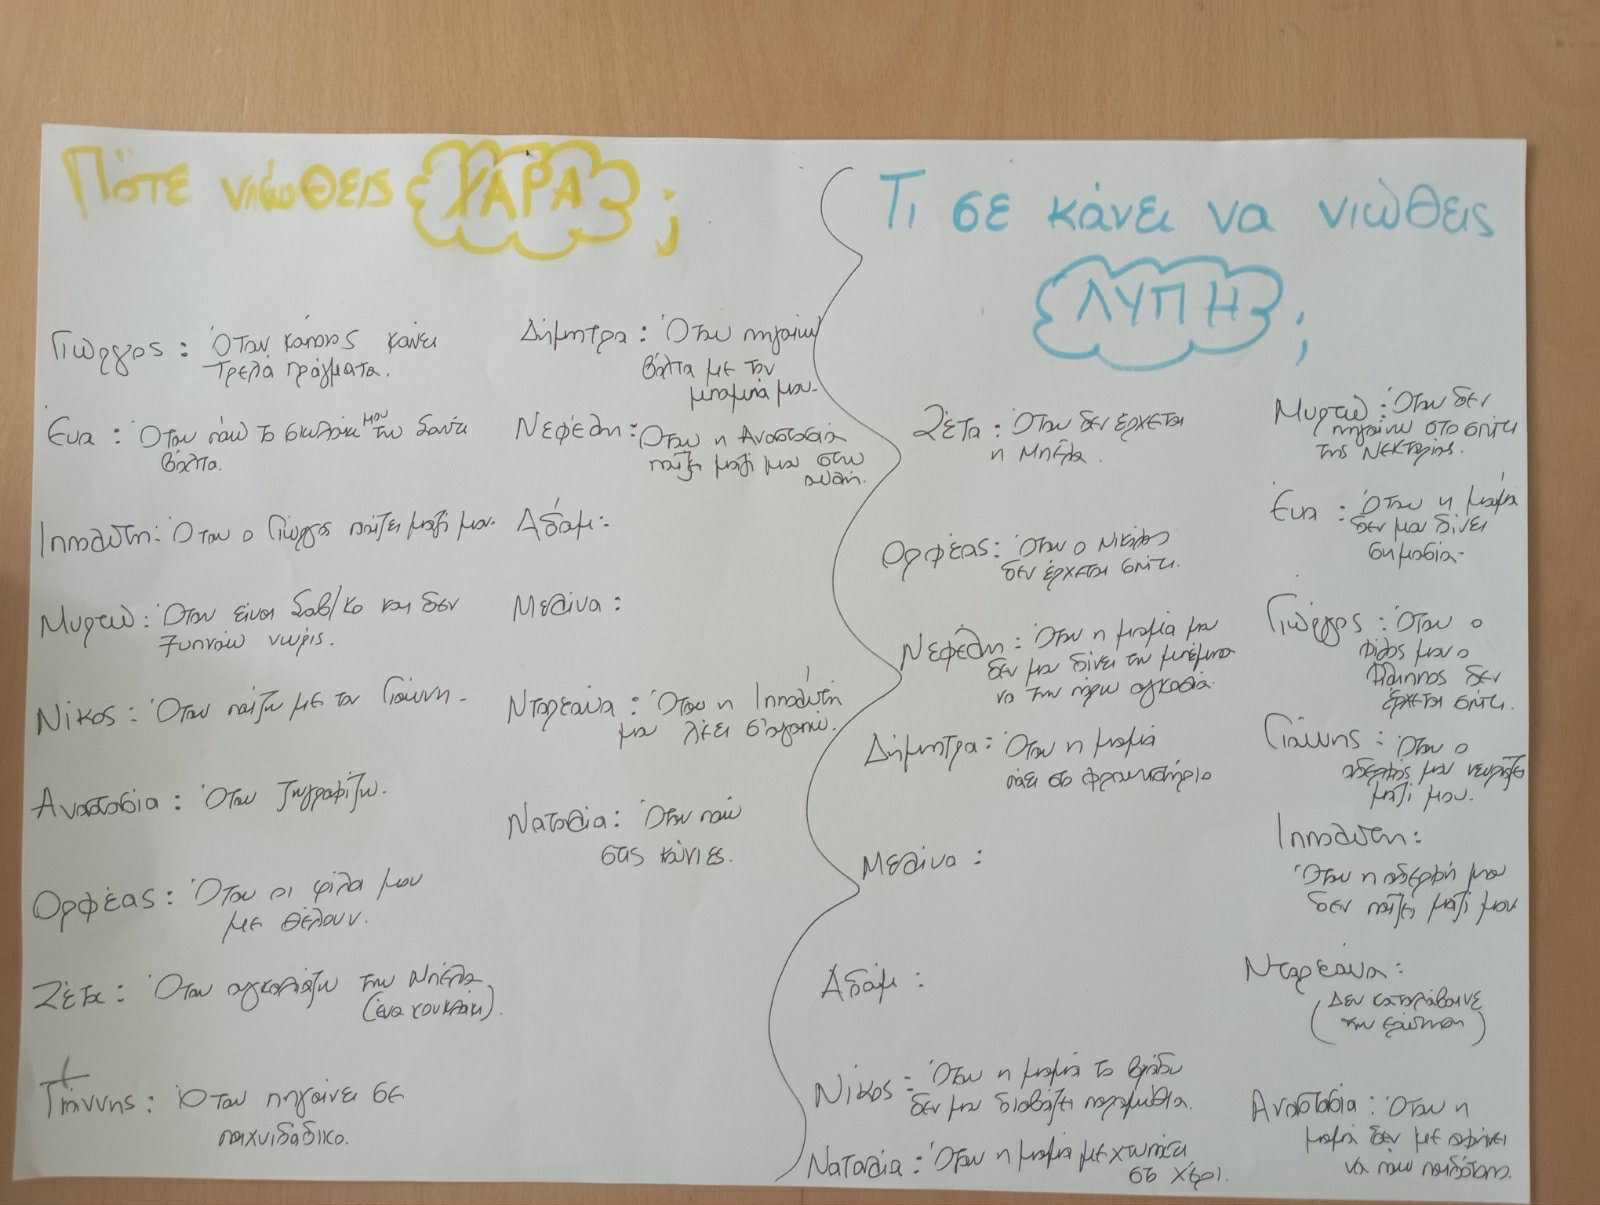 Πότε νιώθεις ΧΑΡΑ;
Γιώργος: Όταν κάποιος κάνει
τρελά πράγματα.
Εύα: Όταν πάω το σκυλάκι μου την Σανέλ
βόλτα.
Ιππολύτη: Όταν ο Γιώργος παίζει μαζί μου.
Μυρτώ: Όταν είναι Σαβ/κο και δεν
ξυπνάω νωρίς.
Νίκος: Όταν παίζω με τον Γιάννη.
Αναστασία: Όταν ζωγραφίζω.
Ορφέας: Όταν οι φίλοι μου
με θέλουν.
Ζέτα: Όταν αγκαλιάζω την Μπέλα
(ένα κουκλάκι).
Γιάννης: Όταν πηγαίνει σε
παιχνιδάδικο.
Δήμητρα: Όταν πηγαίνω
βόλτα με τον
μπαμπά μου.
Νεφέλη: Όταν η Αναστασία
παίζει μαζί μου στην
αυλή.
Αδάμ:
Μελίνα:
Νταρεάνα: Όταν η Ιππολύτη
μου λέει σ'αγαπώ.
Ναταλία: Όταν πάω
στις κούνιες.
Τι σε κάνει να νιώθεις
ΛΥΠΗ;
Ζέτα: Όταν δεν έρχεται
η Μπέλα.
Ορφέας: Όταν ο Νικόλας
δεν έρχεται σπίτι.
Νεφέλη: Όταν η μαμά μου
δεν μου δίνει την μπέμπα
να την πάρω αγκαλιά.
Δήμητρα: Όταν η μαμά
πάει στο φροντιστήριο
Μελίνα:
Αδάμ:
Νίκος: Όταν η μαμά το βράδυ
δεν μου διαβάζει παραμύθια.
Ναταλία: Όταν η μαμά με χτυπάει
στο χέρι.
Μυρτώ: Όταν δεν
πηγαίνω στο σπίτι
της Νεκταρίας.
Εύα: Όταν η μαμά
δεν μου δίνει
σημασία.
Γιώργος: Όταν ο
φίλος μου ο
Φίλιππος δεν
έρχεται σπίτι.
Γιάννης: Όταν ο
αδερφός μου νευριάζει
μαζί μου.
Ιππολύτη:
Όταν η αδερφή μου
δεν παίζει μαζί μου
Νταρεάνα:
(Δεν κατάλαβαινε
την ερώτηση)
Αναστασία: Όταν η
μαμά δεν με αφήνει
να πάω παιδότοπο.